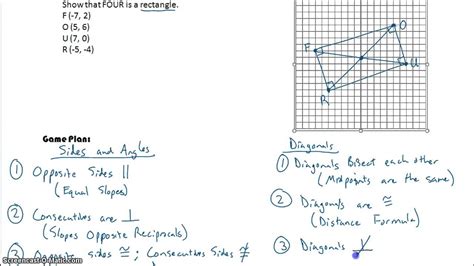 Show that FOUR is a rectangle.
F (-7, 2)
O (5, 6)
U (7, 0)
R (-5, -4)
F
O
U
R
Game Plan:
Sides and Angles
① Opposite Sides ||
(Equal Slopes)
② Consecutives are ⊥
(Slopes Opposite Reciprocals)
Opposite sides ≅; Consecutive Sides ≇
Diagonals
① Diagonals Bisect each other
(Midpoints are the same)
② Diagonals are ≅
(Distance Formula)
③ Diagonals
Screencast-O-Matic.com